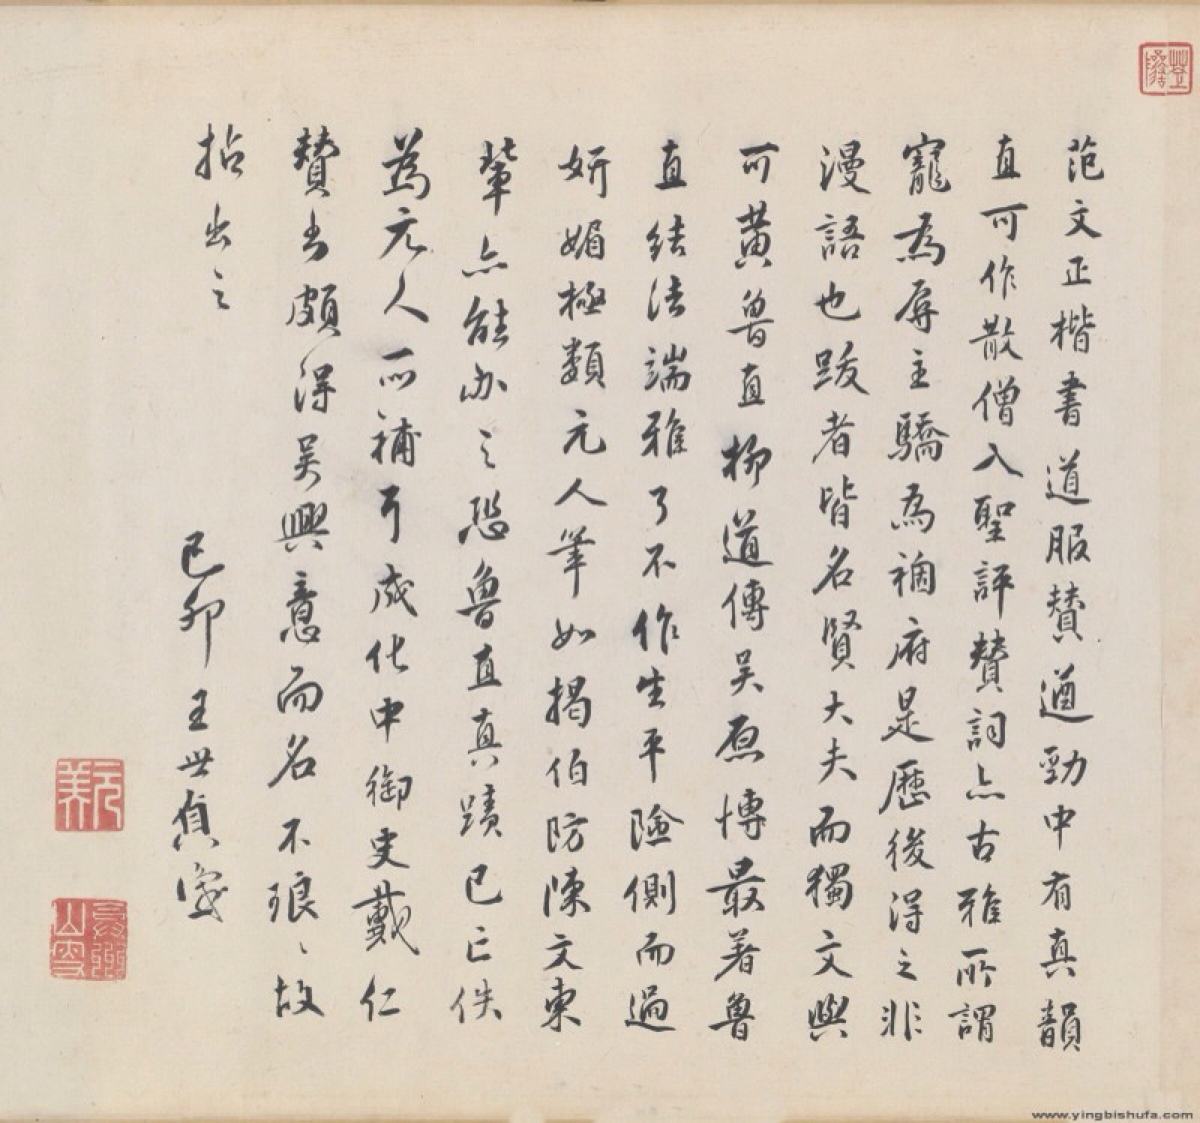 范文正楷書道服贊遒勁中有真韻
直可作散僧入聖評贊詞亦古雅所謂
寵為辱主驕為禍府是歷後得之非
漫語也跋者皆名賢大夫而獨文與
可黃魯直柳道傳吳原博最著魯
直結法端雅了不作生平險側而過
妍媚極類元人筆如揭伯防陳文東
輩亦能辦之恐魯直真蹟已亡佚
為元人所補耳成化中御史戴仁
贊書頗得吳興意而名不琅〻故
拈出之
己卯王世貞識
元美
www.yingbishufa.com